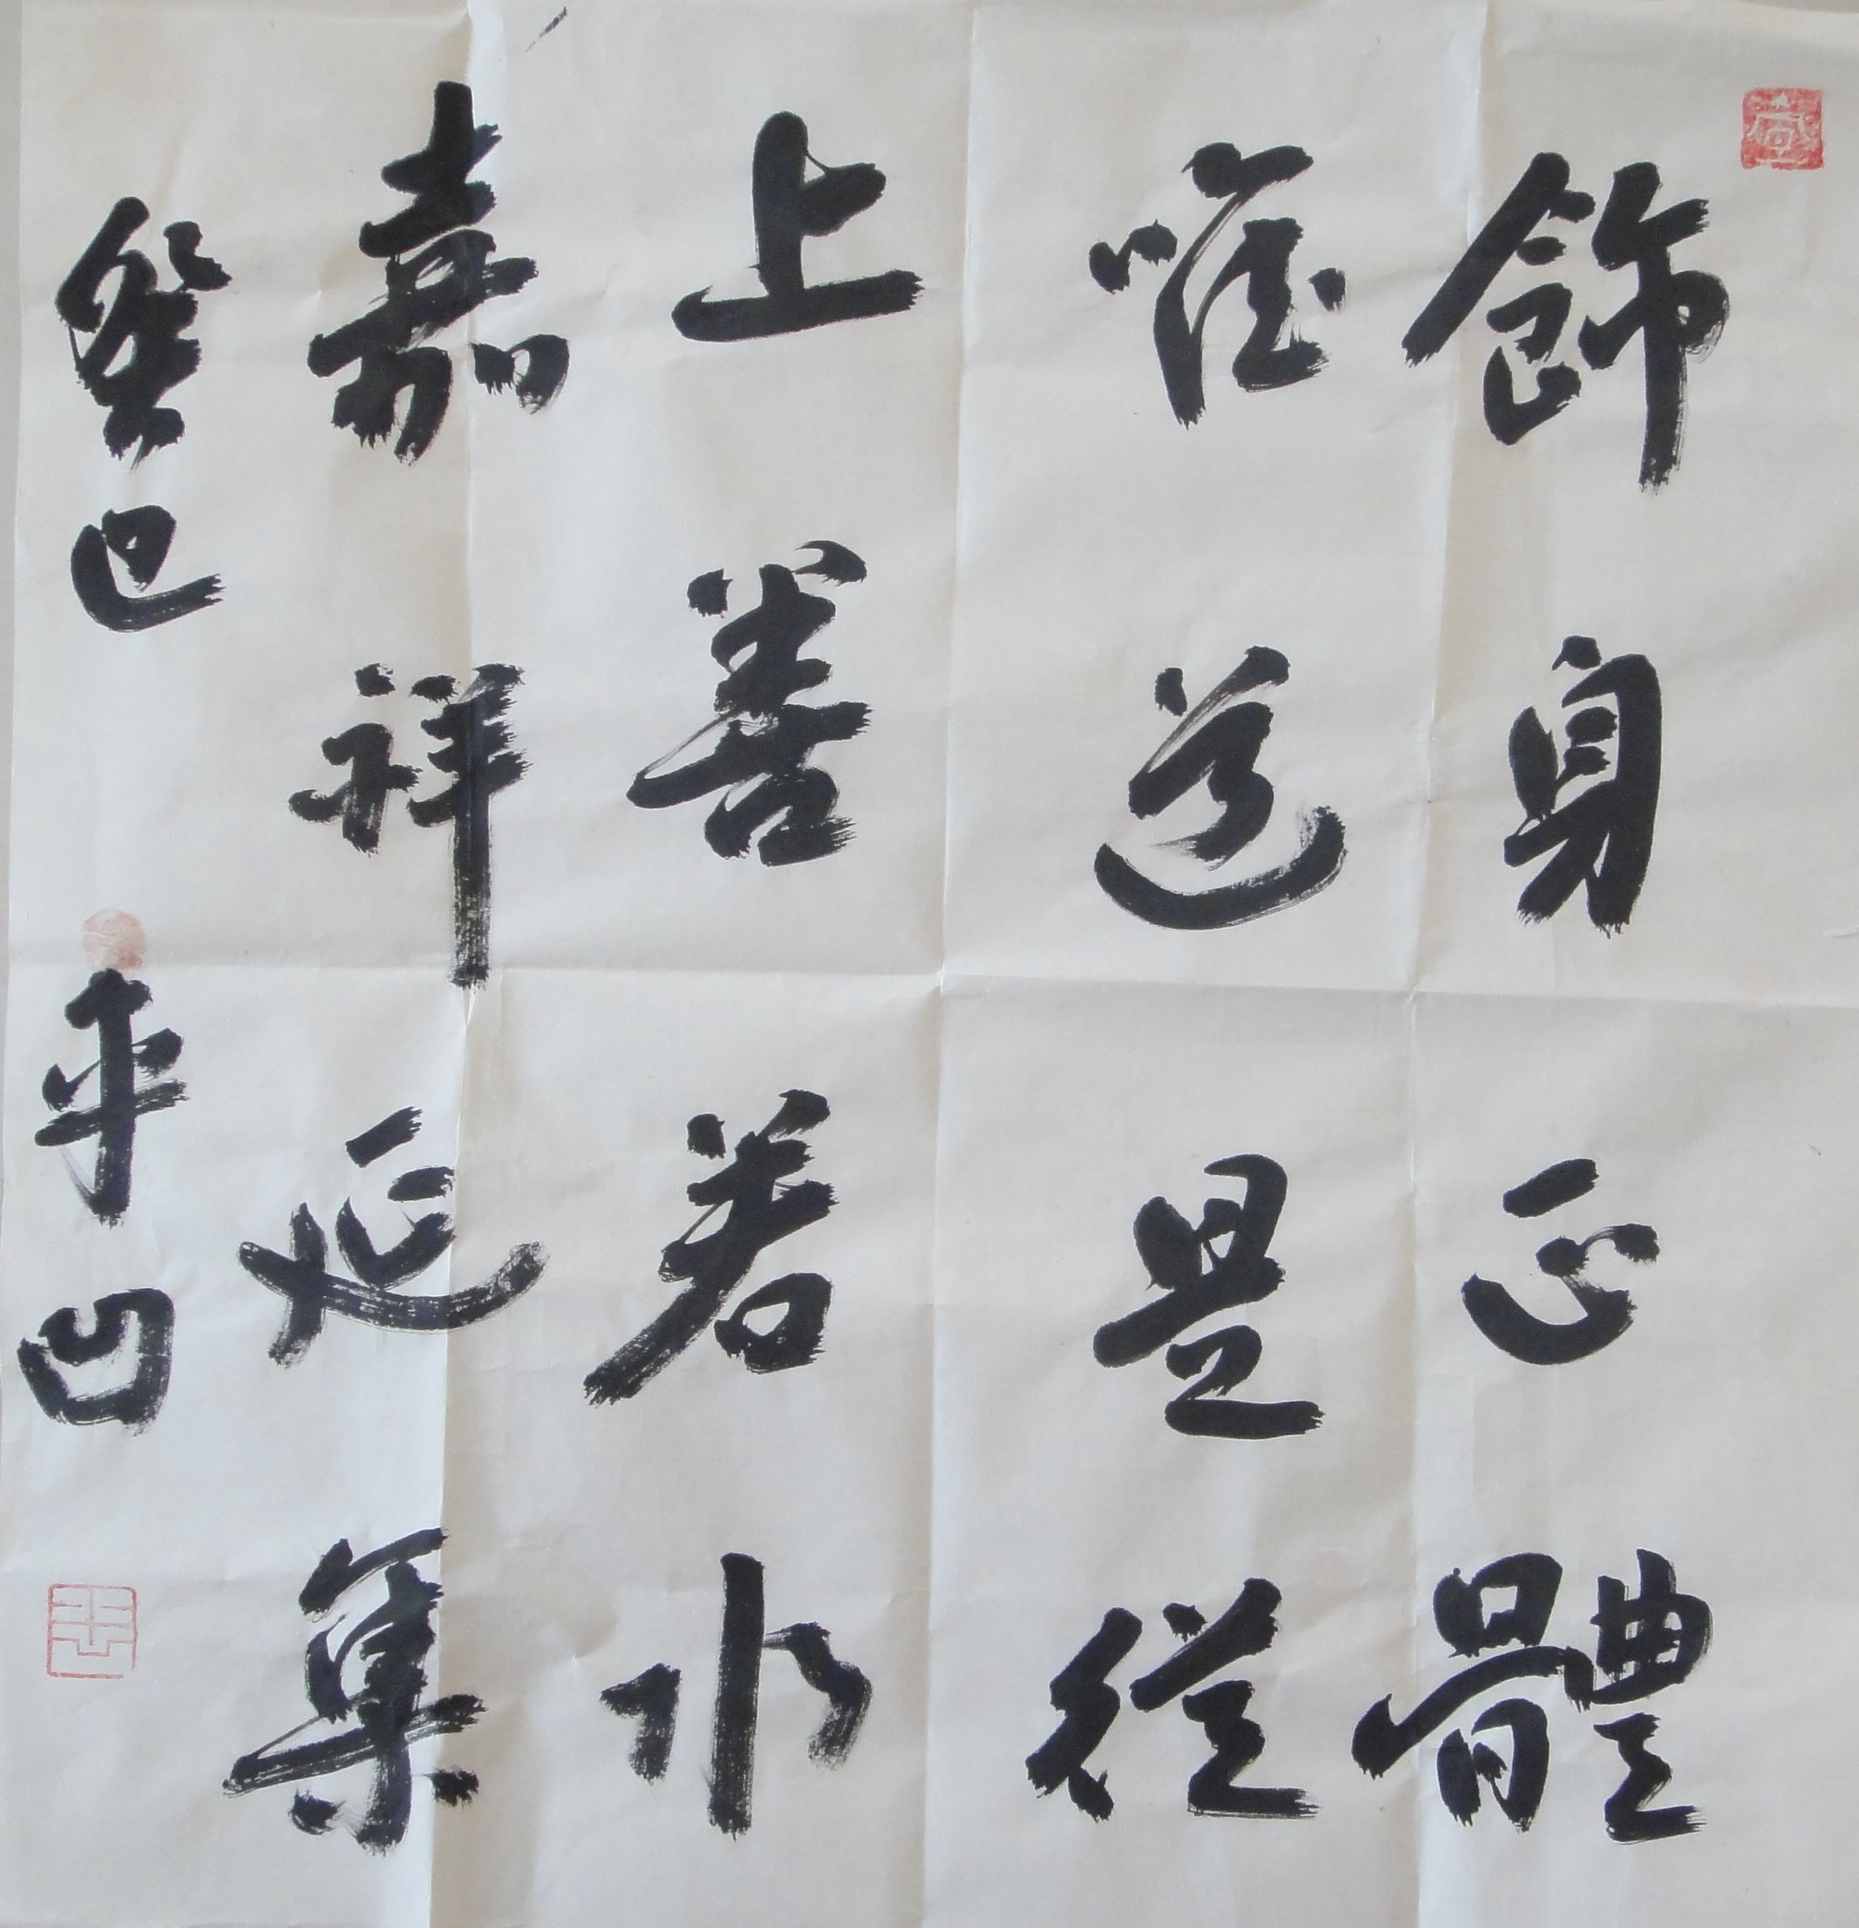 飾身正體
唯道是從
上善若水
嘉祥延集
癸巳 平凹